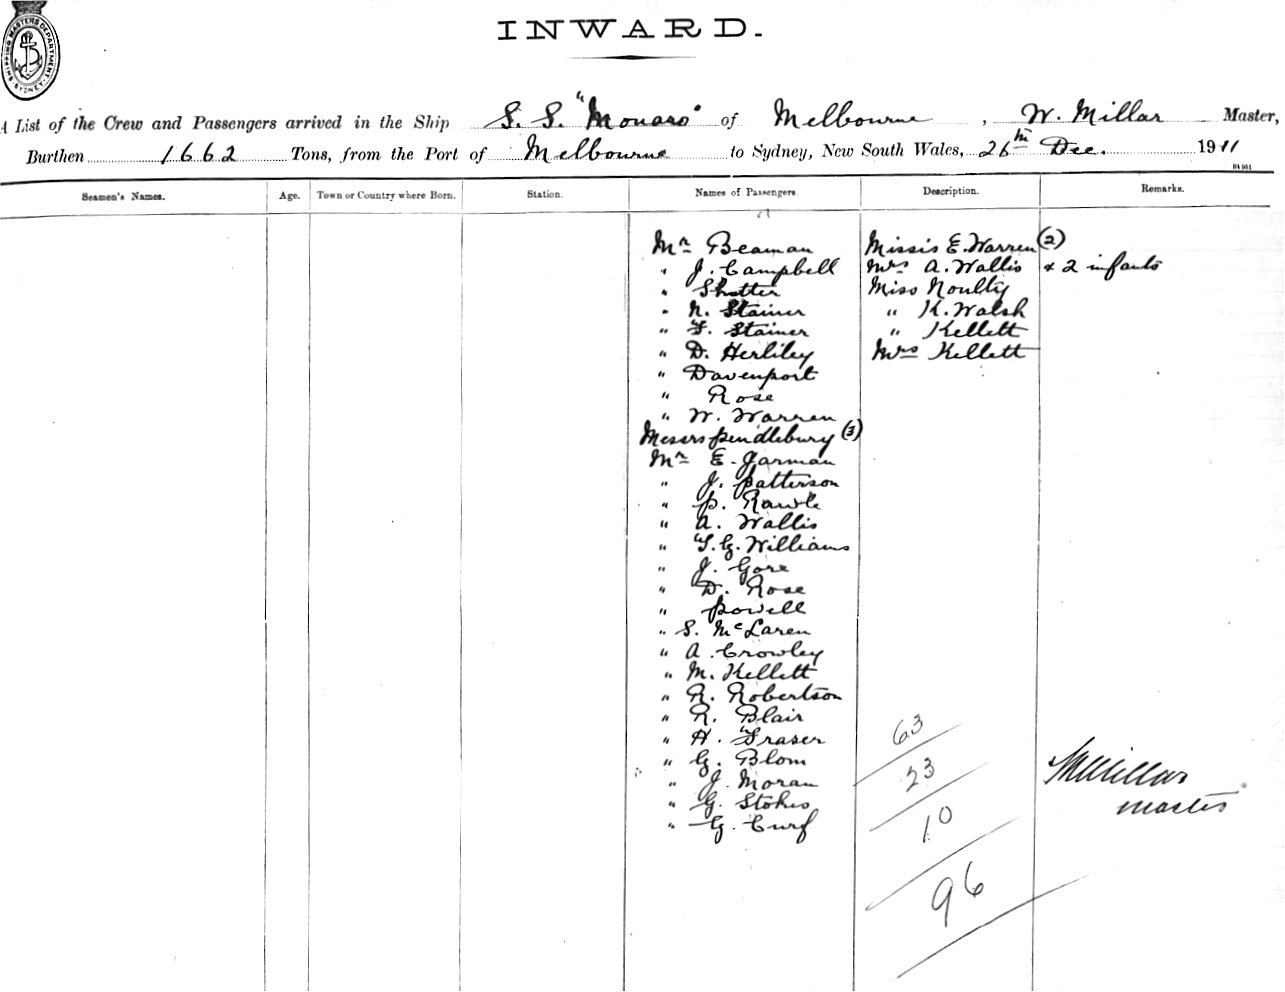 SHIPPING MASTERS DEPARTMENT. SYDNEY.
INWARD.
A List of the Crew and Passengers arrived in the Ship S. S. "Monaro" of Melbourne, W. Millar Master,
Burthen 1662 Tons, from the Port of Melbourne to Sydney, New South Wales, 26th Dec. 1911
Seamen's Names. Age. Town or Country where Born. Station. Names of Passengers. Description. Remarks.
Mr Beaman Missis E. Warren (2)
" J. Campbell Mrs A. Wallis & 2 infants
" Shotter Miss Noulty
" N. Stainer " K. Walsh
" F. Stainer " Kellett
" D. Herliley Mrs Kellett
" Davenport
" Rose
" W. Warren
Messrs Pendlebury (3)
Mr E. Jarman
" J. Patterson
" P. Rawle
" A. Wallis
" T. G. Williams
" J. Gore
" D. Rose
" Powell
" S. McLaren
" A. Crowley
" M. Kellett
" R. Robertson
" R. Blair
" H. Fraser
" G. Blom
" J. Moran
" G. Stokes
" G. Curf
63
23
10
96
WMillar
master